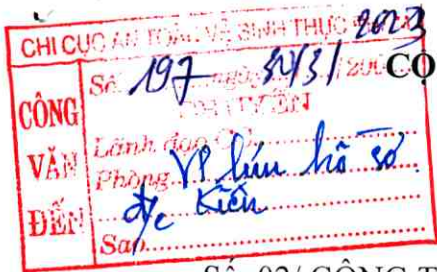 CHI CỤC AN TOÀN VỆ SINH THỰC
2023
CÔNG VĂN ĐẾN
Số 197 ngày 30/3/ 200
CHUYỂN
Lãnh đạo
Phòng VP lưu hồ sơ
đ/c Kiên
Sao
CỘ
Số 02/ CÔNG T